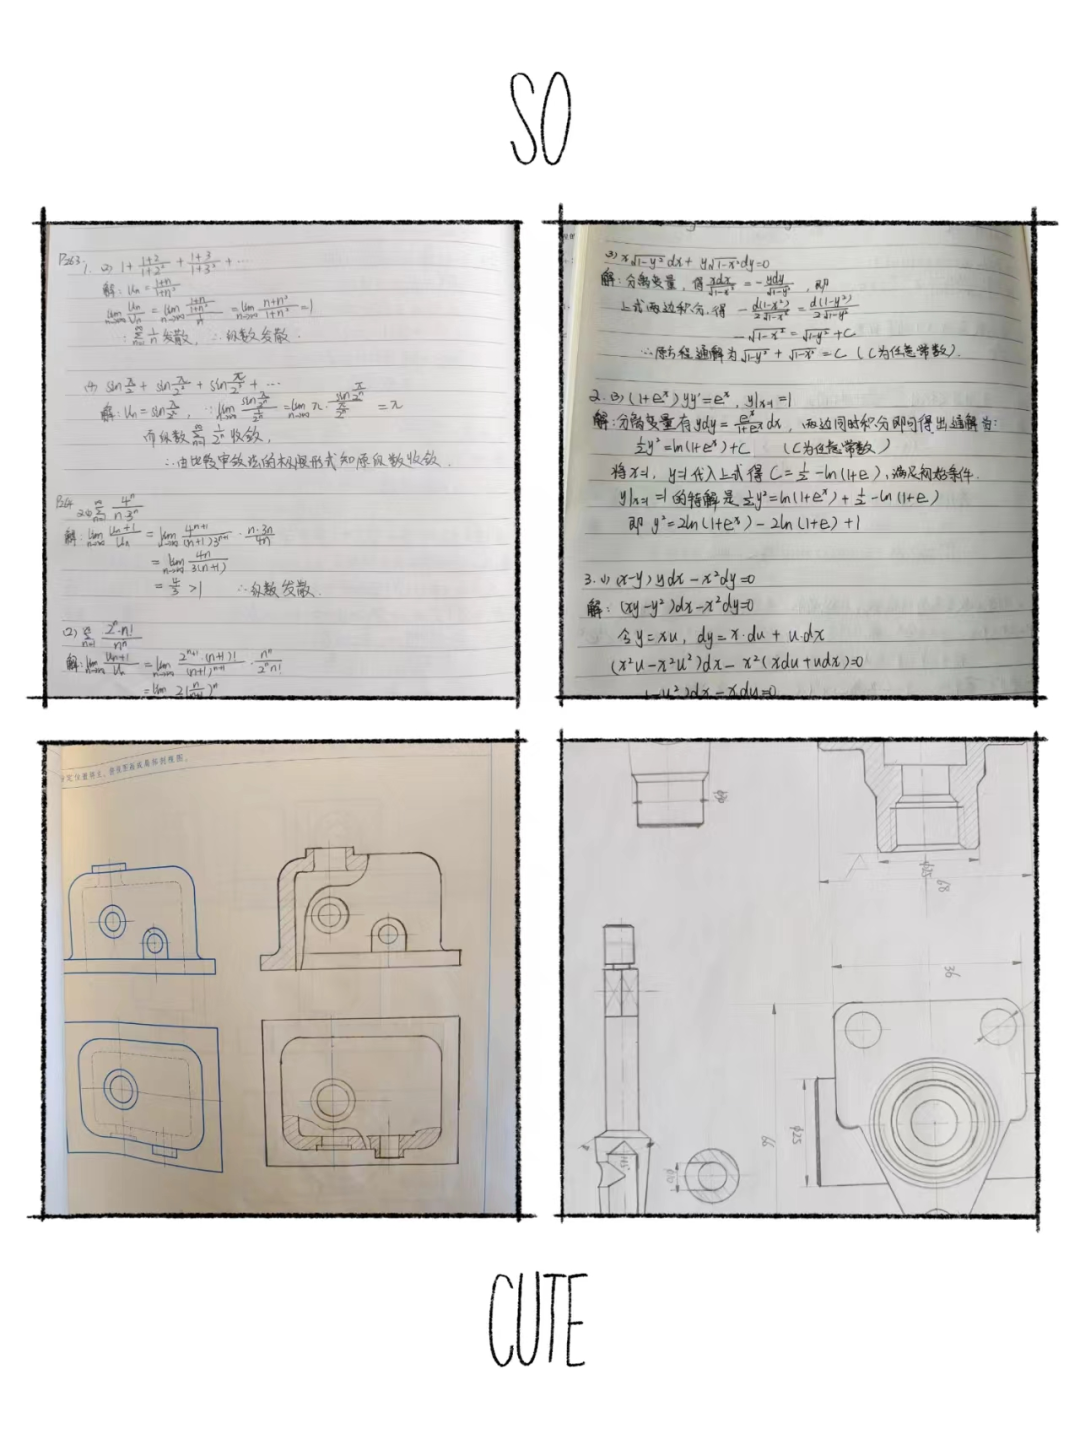 SO
P263. 1. (2) 1 + \frac{1+2}{1+2^2} + \frac{1+3}{1+3^2} + ...
解: Un = \frac{1+n}{1+n^2}
\lim_{n→∞} \frac{Un}{Vn} = \lim_{n→∞} \frac{\frac{1+n}{1+n^2}}{\frac{1}{n}} = \lim_{n→∞} \frac{n+n^2}{1+n^2} = 1
∵ \sum_{n=1}^{∞} \frac{1}{n} 发散, ∴ 级数发散.
(4) sin\frac{π}{2} + sin\frac{π}{2^2} + sin\frac{π}{2^3} + ...
解: Un = sin\frac{π}{2^n}, ∵ \lim_{n→∞} \frac{sin\frac{π}{2^n}}{\frac{1}{2^n}} = \lim_{n→∞} π · \frac{sin\frac{π}{2^n}}{\frac{π}{2^n}} = π
而级数 \sum_{n=1}^{∞} \frac{1}{2^n} 收敛,
∴ 由比较审敛法的极限形式知原级数收敛.
\sum_{n=1}^{∞} \frac{4^n}{n·3^n}
解: \lim_{n→∞} \frac{Un+1}{Un} = \lim_{n→∞} \frac{4^{n+1}}{(n+1)3^{n+1}} · \frac{n·3n}{4n}
= \lim_{n→∞} \frac{4n}{3(n+1)}
= \frac{4}{3} >1 ∴ 级数发散.
(2) \sum_{n=1}^{∞} \frac{2^n·n!}{n^n}
解: \lim_{n→∞} \frac{Un+1}{Un} = \lim_{n→∞} \frac{2^{n+1}·(n+1)!}{(n+1)^{n+1}} · \frac{n^n}{2^n n!}
= \lim 2(\frac{n}{n+1})^n
(3) x\sqrt{1-y^2}dx + y\sqrt{1-x^2}dy=0
解: 分离变量, 得 \frac{xdx}{\sqrt{1-x^2}} = -\frac{ydy}{\sqrt{1-y^2}}, 即
上式两边积分, 得 -\frac{d(1-x^2)}{2\sqrt{1-x^2}} = \frac{d(1-y^2)}{2\sqrt{1-y^2}}
-\sqrt{1-x^2} = \sqrt{1-y^2} + C
∴ 原方程通解为 \sqrt{1-y^2} + \sqrt{1-x^2} = C (C为任意常数).
2. (3) (1+e^x)yy'=e^x, y|x=1 =1
解: 分离变量有 ydy = \frac{e^x}{1+e^x}dx, 两边同时积分即可得出通解为:
\frac{1}{2}y^2 = ln(1+e^x)+C (C为任意常数)
将x=1, y=1代入上式得 C = \frac{1}{2} - ln(1+e), 满足初始条件.
y|x=1 =1 的特解是 \frac{1}{2}y^2 = ln(1+e^x) + \frac{1}{2} - ln(1+e)
即 y^2 = 2ln(1+e^x) - 2ln(1+e) + 1
3. (1) (x-y)ydx - x^2dy=0
解: (xy-y^2)dx-x^2dy=0
令y=xu, dy=x·du + u·dx
(x^2u-x^2u^2)dx - x^2(xdu+udx)=0
-u^2)dx - xdu=0
68
36
66
φ25
CUTE